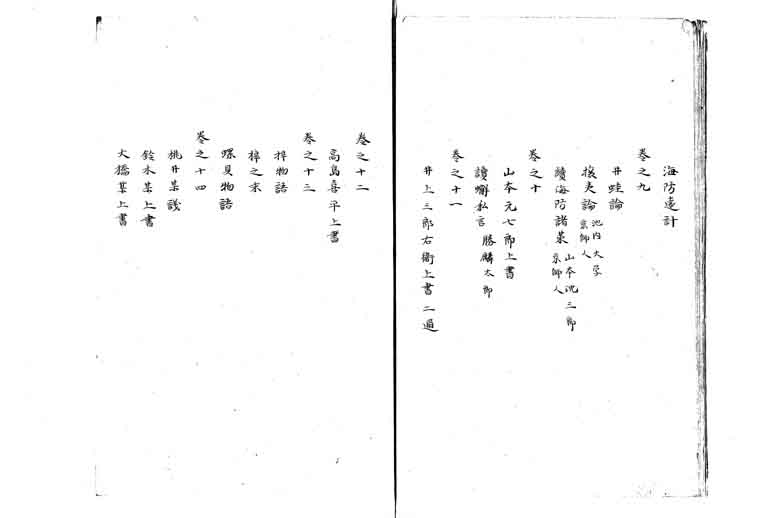 海防遠計
巻之九
井蛙論
攘夷論 池内大学 京師人
讀海防諸策 山本沈三郎 京師人
巻之十
山本元七郎上書
讀蠏私言 勝麟太郎
巻之十一
井上三郎右衛上書二通
巻之十二
高島喜平上書
巻之十三
梓物語
梓之末
螺貝物語
巻之十四
桃井某議
鈴木某上書
大橋某上書